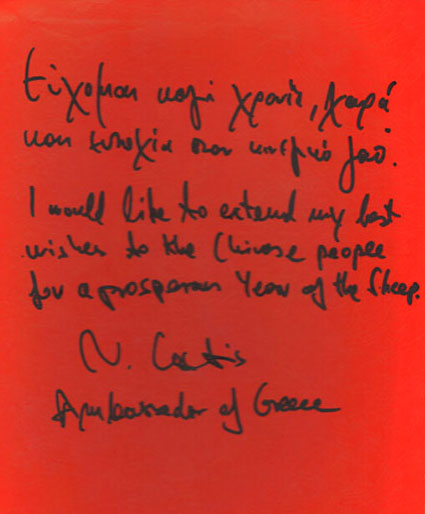 Εύχομαι καλή χρονιά, χαρά
και ευτυχία στον κινεζικό λαό.
I would like to extend my best
wishes to the Chinese people
for a prosperous Year of the Sheep.
N.
Ambassador of Greece